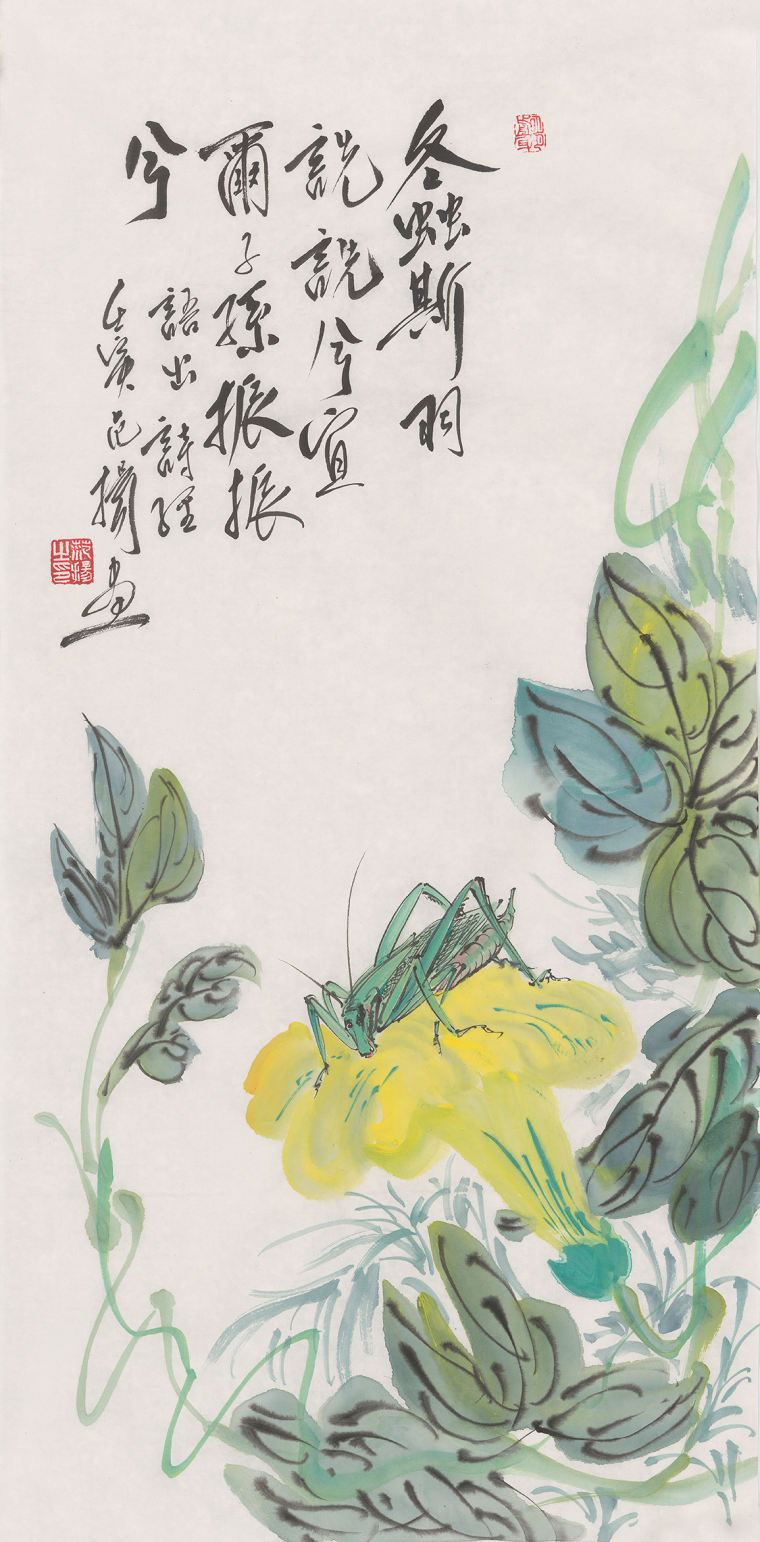 螽斯羽
詵詵兮宜
爾子孫振振
兮
語出詩經
壬寅范揚畫
范揚之印